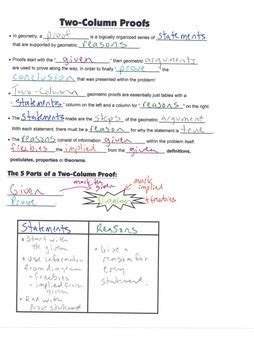 Two-Column Proofs
• In geometry, a proof is a logically organized series of statements
that are supported by geometric reasons.
• Proofs start with the "given", then geometric arguments
are used to prove along the way, in order to finally "prove" the
conclusion that was presented within the problem!
• Two-Column geometric proofs are essentially just tables with a
"statements" column on the left and a column for "reasons" on the right
• The statements made are the steps of the geometric argument
With each statement, there must be a reason for why the statement is true
• The reasons consist of information given within the problem itself,
freebies the implied from the given, definitions,
postulates, properties or theorems.
The 5 Parts of a Two-Column Proof:
mark the given
mark implied
+ freebies
Given
Prove
Diagram
Statements Reasons
• Start with the given
• Use information from diagram
→ freebies
→ implied from given
• End with prove statement
• Give a reason for every statement.